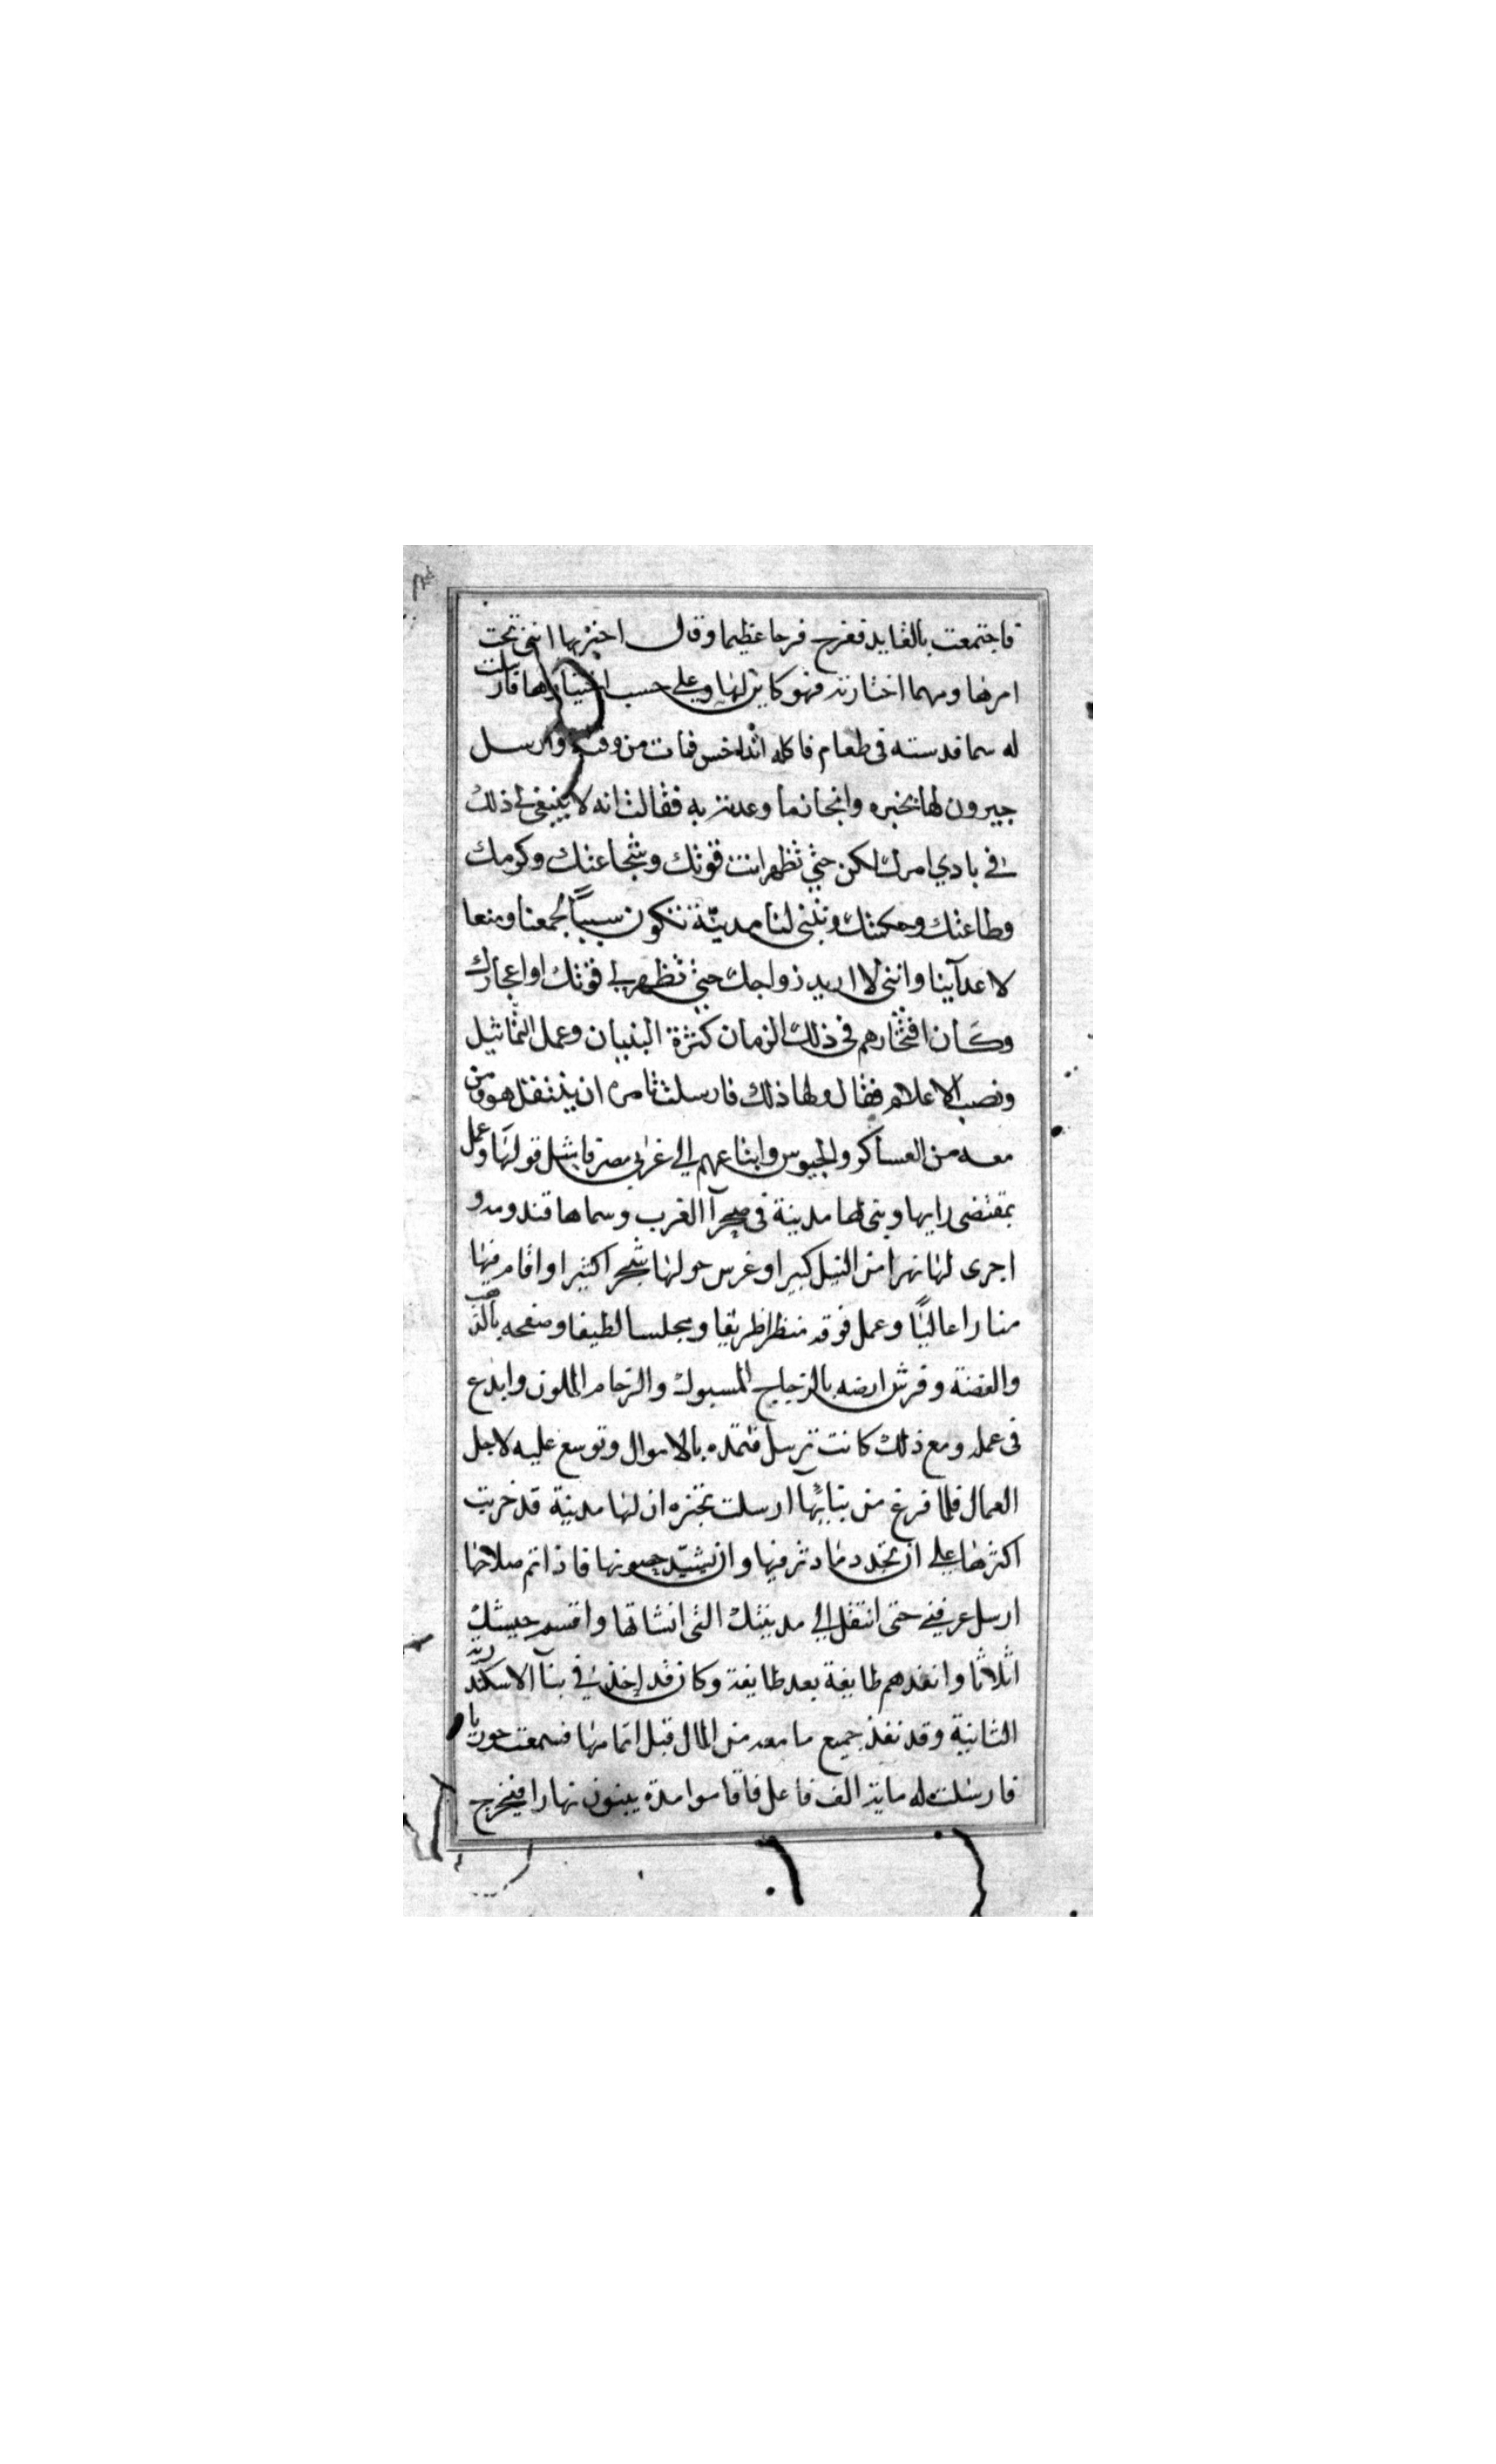 فاجتمعت بالقايد ففرح فرحا عظيما وقال اخبريها انني تحت
امرها ومهما اختارته فهو كاين لها وعلى حسب اختيارها فارسلت
له سما قدسته في طعام فاكله القايد فمات من وقته وارسل
جيرون لها يخبره وانجاز ما وعدته به فقالت انه لا ينبغي لي ذلك
في بادي امرك لكن حتى تظهر انت قوتك وشجاعتك وكرمك
وطاعتك وحكمتك وتبني لنا مدينة تكون سببًا لجمعنا ومنعا
لاعدآينا وانني لا اريد زواجك حتى تظهر لي قوتك او اعجازك
وكان افتخارهم في ذلك الزمان كثرة البنيان وعمل التماثيل
ونصب الاعلام فقال ولها ذلك فارسلت تامره ان ينتقل هو ومن
معه من العساكر والجيوس واتباعهم الى غربي مصر فامتثل قولها وعمل
بمقتضى رايها وبنى لها مدينة في صحرآ الغرب وسماها قندومه و
اجرى لها نهرا من النيل كبيرا وغرس حولها شجرا كثيرا واقام فيها
منارا عاليًا وعمل فوقه منظرا ظريفا ومجلسا لطيفا وصفحه بالذهب
والفضة وفرش ارضه بالزجاج المسبوك والرخام الملون وابدع
في عمله ومع ذلك كانت ترسل فتمده بالاموال وتوسع عليه لاجل
العمال فلما فرغ من بنايها ارسلت تخبره ان لها مدينة قد خربت
اكثرها على ان تجدد ما دثر فيها وان تشيد حصونها فاذا تم صلاحها
ارسل عرفني حتى انتقل الى مدينتك التي انشاتها واقسم جيشك
اثلاثا وانفذهم طايفة بعد طايفة وكان قد اخذ في بنآ الاسكندرية
الثانية وقد نفذ جميع ما معه من المال قبل اتمامها فسمعت حوريا
فارسلت له ماية الف فاعل فاقاموا مدة يبنون نهارا فيخرج